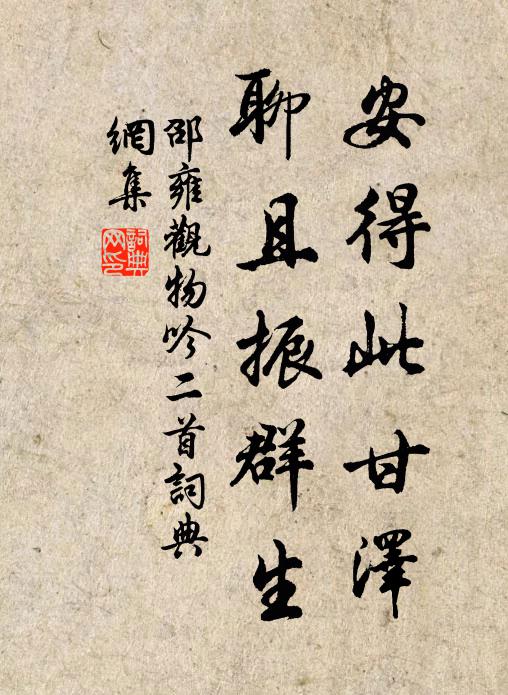 安得此甘澤
聊且振群生
邵雍觀物吟二首詞典
網集
詞典
网印